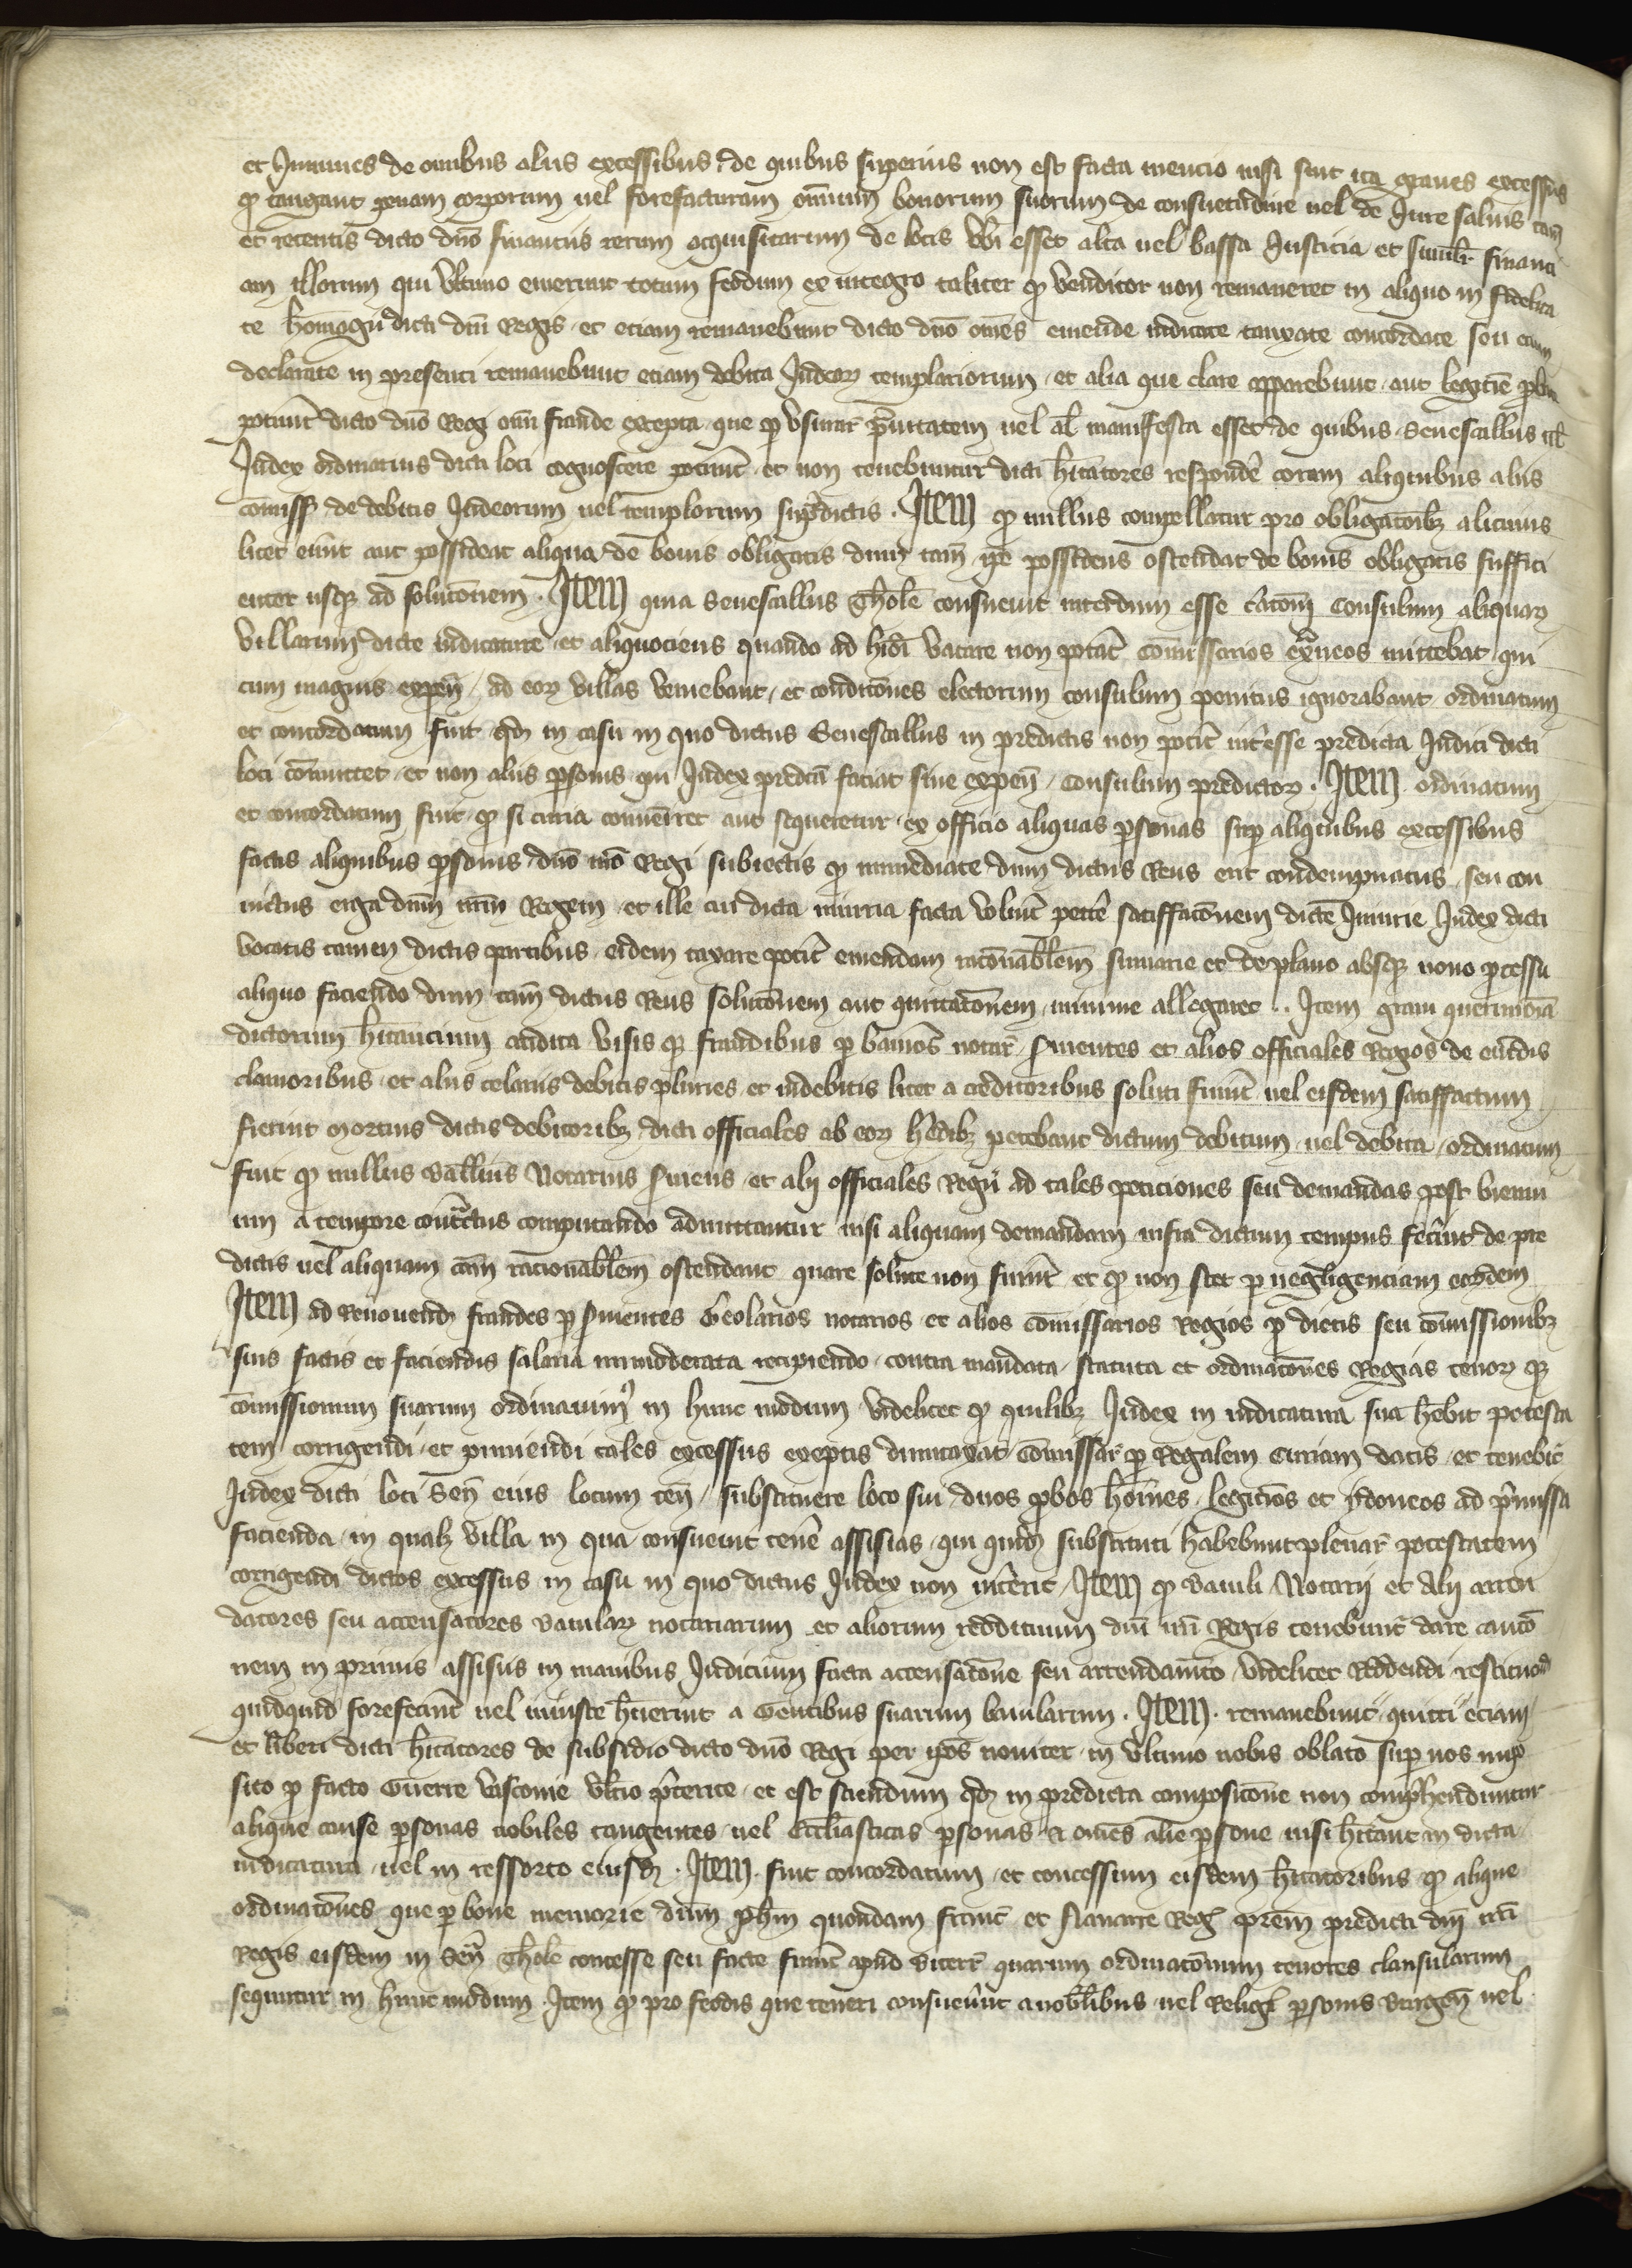 et Inmunes de omnibus aliis excessibus de quibus superius non est facta mencio nisi sint ita graues excessus
qȝ tangant penam corporum uel forefacturam omnium bonorum suorum de consuetudine uel de Jure saluis tam̄
et retentis dicto dn̄o financiis rerum acquisitarum de locis Vbi esset alta uel bassa Justicia et simil̄r financi
am illorum qui Vltimo emerunt totum feodum ex integro taliter qȝ Venditor non remaneret in aliquo in fidelita
te homagii dicti dn̄i Regis et eciam remanebunt dicto dn̄o om̄es emende iudicate taxate concordate seu eciam
declarate in presenti remanebunt eciam debita Judeoȝ templariorum et alia que clare apparebunt aut legitīe
poterunt̄ dicto dn̄o Regi om̄i fraude excepta que ꝑ Vsurar̄ prauitatem uel al̄ manifesta esset de quibus Senescallus uel
Judex ordinarius dicti loci cognoscere poterunt̄ et non tenebuntur dicti hitatores respondē coram aliquibus aliis
cōmiss̄ de debitis Judeorum uel templorum sup̄dictis . Item qȝ nullus compellatur pro obligatōibȝ alicuius
licet emit̄ aut possideat aliqua de bonis obligatis dum tam̄ ip̄e possidens ostendat de bonis obligatis suffici
enter usqȝ ad solutōnem . Item quia Senescallus Thol̄e consueuit interdum esse c̄atōm̄ Consulum aliquaȝ
Villarum dicte iudicature et aliquociens quando ad h̄idi Vacare non poterat̄ Cōmissarios ext̄neos mittebat qui
cum magnis expen̄ ad eoȝ Villas Veniebant et condicōnes electorum consulum penitus ignorabant ordinatum
et concordatum fuit qd̄ in casu in quo dictus Senescallus in predictis non poterit̄ int̄esse predicta Judici dicti
loci cōmittet et non aliis ꝑsonis qui Judex predicta faciat sine expen̄ Consulum predictoȝ . Item ordinatum
et concordatum fuit qȝ si curia conueniret aut sequeretur ex officio aliquas ꝑsonas sup̄ aliquibus excessibus
factis aliquibus ꝑsonis dn̄o nr̄o Regi subiectis qȝ immediate dum dictus Reus erit condempnatus seu con
uictus erga dn̄m nr̄m Regem et ille cui dicta iniuria facta Voluerit̄ petē satisfactōnem dictē Iniurie Judex dicti
Vocatis tamen dictis partibus eidem taxare poterit̄ emendam racōnabilem̄ sumarie et de plano absqȝ nouo ꝓcessu
aliquo faciendo dum tam̄ dictus Reus solutōnem aut quittatōnem minime allegaret .. Item graui querimōia
dictorum hitancium audita Visis qȝ fraudibus ꝑ baiulos̄ notar̄ seruientes et alios officiales Regios de eut̄dis
clamoribus et aliis celariis debitis pluries et indebitis licet a creditoribus soluti fuerint̄ uel eisdem satisfactum
fuerint mortuis dictis debitoribȝ dicti officiales ab eoȝ h̄edibȝ petebant dictum debitum uel debita ordinatum
fuit qȝ nullus Baiulus̄ Notarius seruiens et alij officiales Regij ad tales peticiones seu demandas post bienni
um a tempore cont̄ctus computando admittantur nisi aliquam demandam infra dictum tempus fec̄int de pre
dictis uel aliquam cām racionabilem̄ ostendant quare solute non fuerint̄ et qȝ non stet ꝑ negligenciam eoȝdem
Item ad Remouendȝ fraudes ꝑ seruientes Geolarios notarios et alios cōmissarios Regios ꝑ dietis seu cōmissionibȝ
suis factis et faciendis salaria immoderata recipiendo contra mandata statuta et ordinatōnes Regias tenoȝ qȝ
cōmissionum suarum ordinauimꝰ in hunc modum Videlicet qȝ quilibȝ Judex in iudicatura sua h̄ebit potesta
tem corrigendi et puniendi tales excessus exceptis dumtaxat Cōmissar̄ ꝑ Regalem Curiam datis et tenebit̄
Judex dicti loci Sen̄ eius locum ten̄ substituere loco sui duos ꝓbos hoīnes legitīos et ydoneos ad p̄missa
facienda in qualȝ Villa in qua consueuit tenē assisias qui quidȝ substituti habebunt plenar̄ potestatem
corrigendi dictos excessus in casu in quo dictus Judex non int̄erit Item qȝ Baiuli Notarij et Alij arren
datores seu accensatores Baiulaȝ notariarum et aliorum reddituum dn̄i nr̄i Regis tenebunt̄ dare cautō
nem in primis assisiis in manibus Judicum facta accensatōne seu arrendam̄to Videlicet Reddendi restituēd
quidquid forefecerint̄ uel iniuste h̄uerint a Gentibus suarum baiularum . Item . remanebunt quitti eciam
et liberi dicti hitatores de subsidio dicto dn̄o Regi per ip̄os nouiter in Vltimo nobis oblato sup̄ nos imp̄o
sito ꝓ facto Guerre Vasconie Vltīo p̄terite et est sciendum qd̄ in predicta composicōne non comp̄hendunt̄ur
alique cause ꝑsonas nobiles tangentes uel Eccl̄iasticas ꝑsonas et om̄es alie ꝑsone nisi hitant in dicta
iudicatura uel in ressorto eiusdȝ . Item . fuit concordatum et concessum eisdem hitatoribus qȝ alique
ordinatōnes que ꝑ bone memorie dn̄m ph̄m quondam franc̄ et Nauarre Regȝ prēm predicti dn̄i nr̄i
Regis eisdem in Sen̄ Thol̄e concesse seu facte fuerunt̄ apud Biterr̄ quarum ordinatōnum tenores clausularum
sequntur in hunc modum . Item qȝ pro feodis que teneri consueuer̄unt a nobilibus̄ uel Reliḡ ꝑsonis Burgen̄ uel